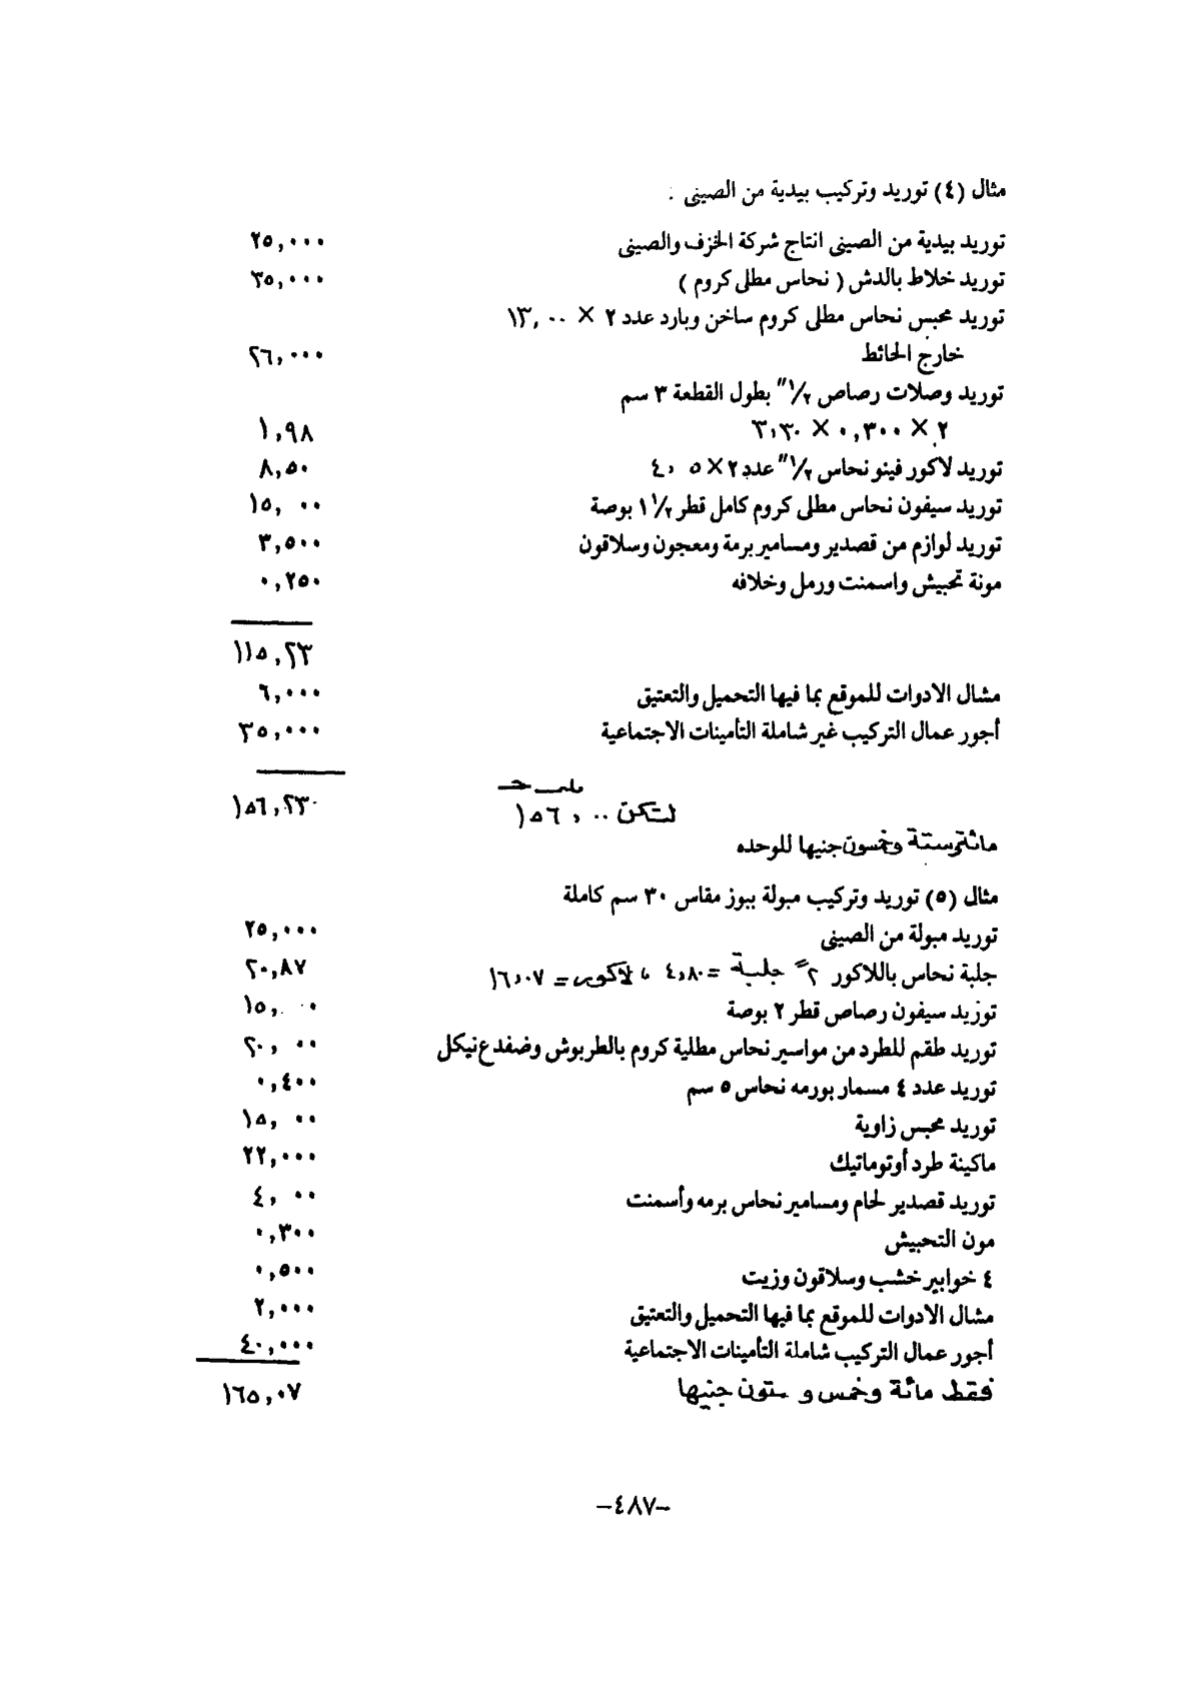 مثال (٤) توريد وتركيب بيدية من الصينى :
توريد بيدية من الصينى انتاج شركة الخزف والصينى ٢٥,٠٠٠
توريد خلاط بالدش ( نحاس مطلى كروم ) ٣٥,٠٠٠
توريد محبس نحاس مطلى كروم ساخن وبارد عدد ٢ × ١٣,٠٠
خارج الحائط ٢٦,٠٠٠
توريد وصلات رصاص ١/٢" بطول القطعة ٣ سم
٢ × ٠,٣٠٠ × ٣,٣٠ ١,٩٨
توريد لاكور فينو نحاس ١/٢" عدد ٢ × ٤,٥ ٨,٥٠
توريد سيفون نحاس مطلى كروم كامل قطر ١ ١/٢ بوصة ١٥,٠٠
توريد لوازم من قصدير ومسامير برمة ومعجون وسلاقون ٣,٥٠٠
مونة تحبيش واسمنت ورمل وخلافه ٠,٢٥٠
١١٥,٢٣
مشال الادوات للموقع بما فيها التحميل والتعتيق ٦,٠٠٠
أجور عمال التركيب غير شاملة التأمينات الاجتماعية ٣٥,٠٠٠
١٥٦,٢٣٠
لتكن ١٥٦,٠٠
مائة وستة وخمسون جنيها للوحده
مثال (٥) توريد وتركيب مبولة ببوز مقاس ٣٠ سم كاملة
توريد مبولة من الصينى ٢٥,٠٠٠
جلبة نحاس باللاكور ٢" جلبة = ٤,٨٠ ، لاكور = ١٦,٠٧ ٢٠,٨٧
توزيد سيفون رصاص قطر ٢ بوصة ١٥,٠٠
توريد طقم للطرد من مواسير نحاس مطلية كروم بالطربوش وضفدع نيكل ٢٠,٠٠
توريد عدد ٤ مسمار بورمه نحاس ٥ سم ٠,٤٠٠
توريد محبس زاوية ١٥,٠٠
ماكينة طرد أوتوماتيك ٢٢,٠٠٠
توريد قصدير لحام ومسامير نحاس برمه وأسمنت ٤,٠٠
مون التحبيش ٠,٣٠٠
٤ خوابير خشب وسلاقون وزيت ٠,٥٠٠
مشال الادوات للموقع بما فيها التحميل والتعتيق ٢,٠٠٠
أجور عمال التركيب شاملة التأمينات الاجتماعية ٤٠,٠٠٠
فقط مائة وخمس و ستون جنيها ١٦٥,٠٧
-٤٨٧-